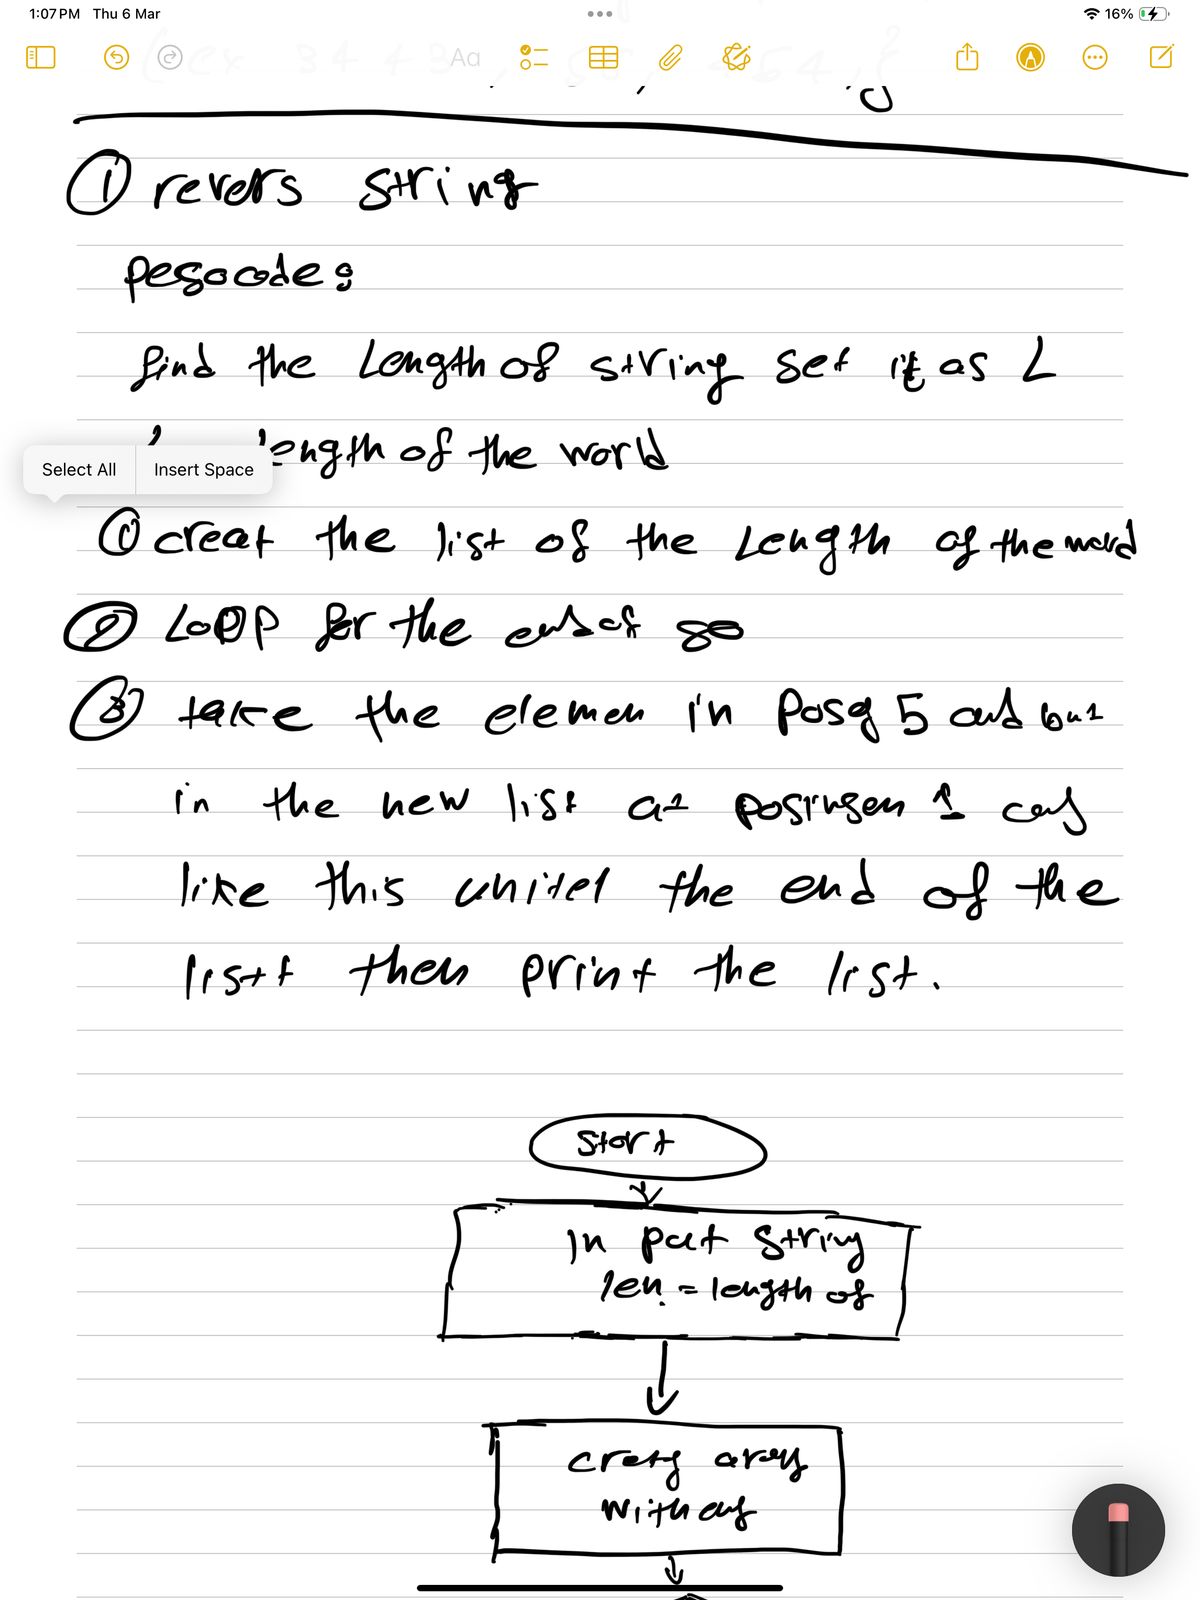 1:07 PM Thu 6 Mar
16%
Aa
① revers string
pesocode:
find the Length of string set it as L
length of the world
Select All
Insert Space
① creat the list of the Length of the word
② Loop for the
③ take the elemen in 5 and but
in the new list at 1
like this unitel the end of the
listt then print the list.
Start
In put String
len = length of
array
with